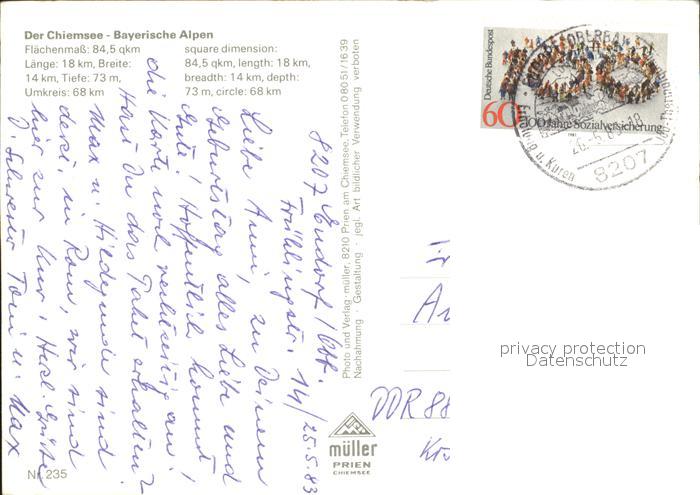 Der Chiemsee - Bayerische Alpen
Flächenmaß: 84,5 qkm
Länge: 18 km, Breite:
14 km, Tiefe: 73 m,
Umkreis: 68 km
square dimension:
84,5 qkm, length: 18 km,
breadth: 14 km, depth:
73 m, circle: 68 km
8207 Endorf/Obb.
Frühlingstr. 14/25.5.83
Liebe Anni, zu Deinem
Geburtstag alles Liebe und
Gute! Hoffentlich kommt
die Karte noch rechtzeitig an!
Hast Du das Paket erhalten?
Max u. Hildegunde sind
derz. in Rom, wir sind
hier zur Kur! Herzl. Grüße
D. Schwester Toni u. Max
Photo und Verlag müller, 8210 Prien am Chiemsee, Telefon 08051/1639
Nachahmung · Gestaltung · jegl. Art bildlicher Verwendung verboten
müller
PRIEN
CHIEMSEE
Nr. 235
Deutsche Bundespost
60
100 Jahre Sozialversicherung
Erholung u. Kuren
8207
An
DDR 88
privacy protection
Datenschutz